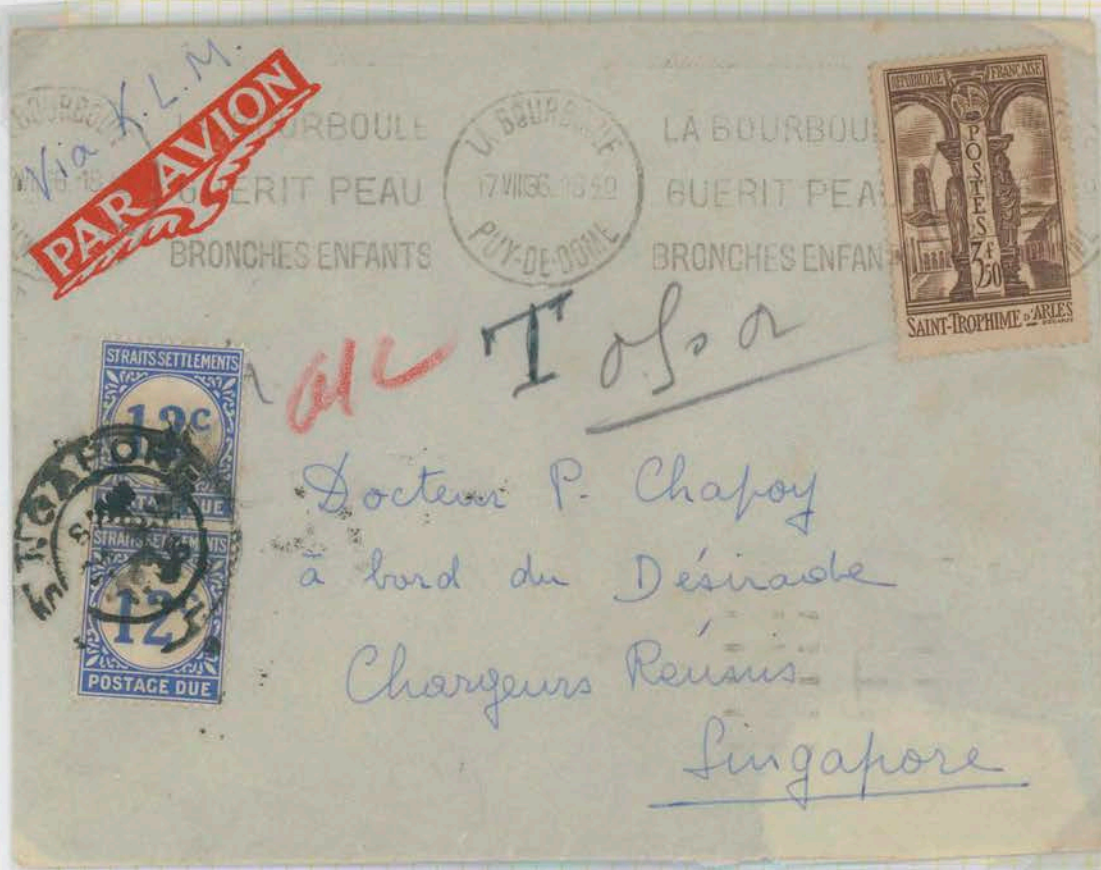 Via K.L.M.
PAR AVION
LA BOURBOULE
GUERIT PEAU
BRONCHES ENFANTS
LA BOURBOULE
17 VII 36. 18 50
PUY-DE-DOME
LA BOURBOU
GUERIT PEA
BRONCHES ENFAN
REPUBLIQUE FRANÇAISE
POSTES
3f
50
SAINT-TROPHIME D'ARLES
T
STRAITS SETTLEMENTS
12c
POSTAGE DUE
STRAITS SETTLEMENTS
12
POSTAGE DUE
Docteur P. Chapoy
à bord du Désirade
Chargeurs Réunis
Singapore